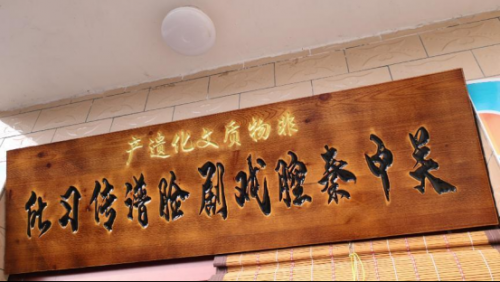 非物质文化遗产
关中秦腔戏剧脸谱传习所